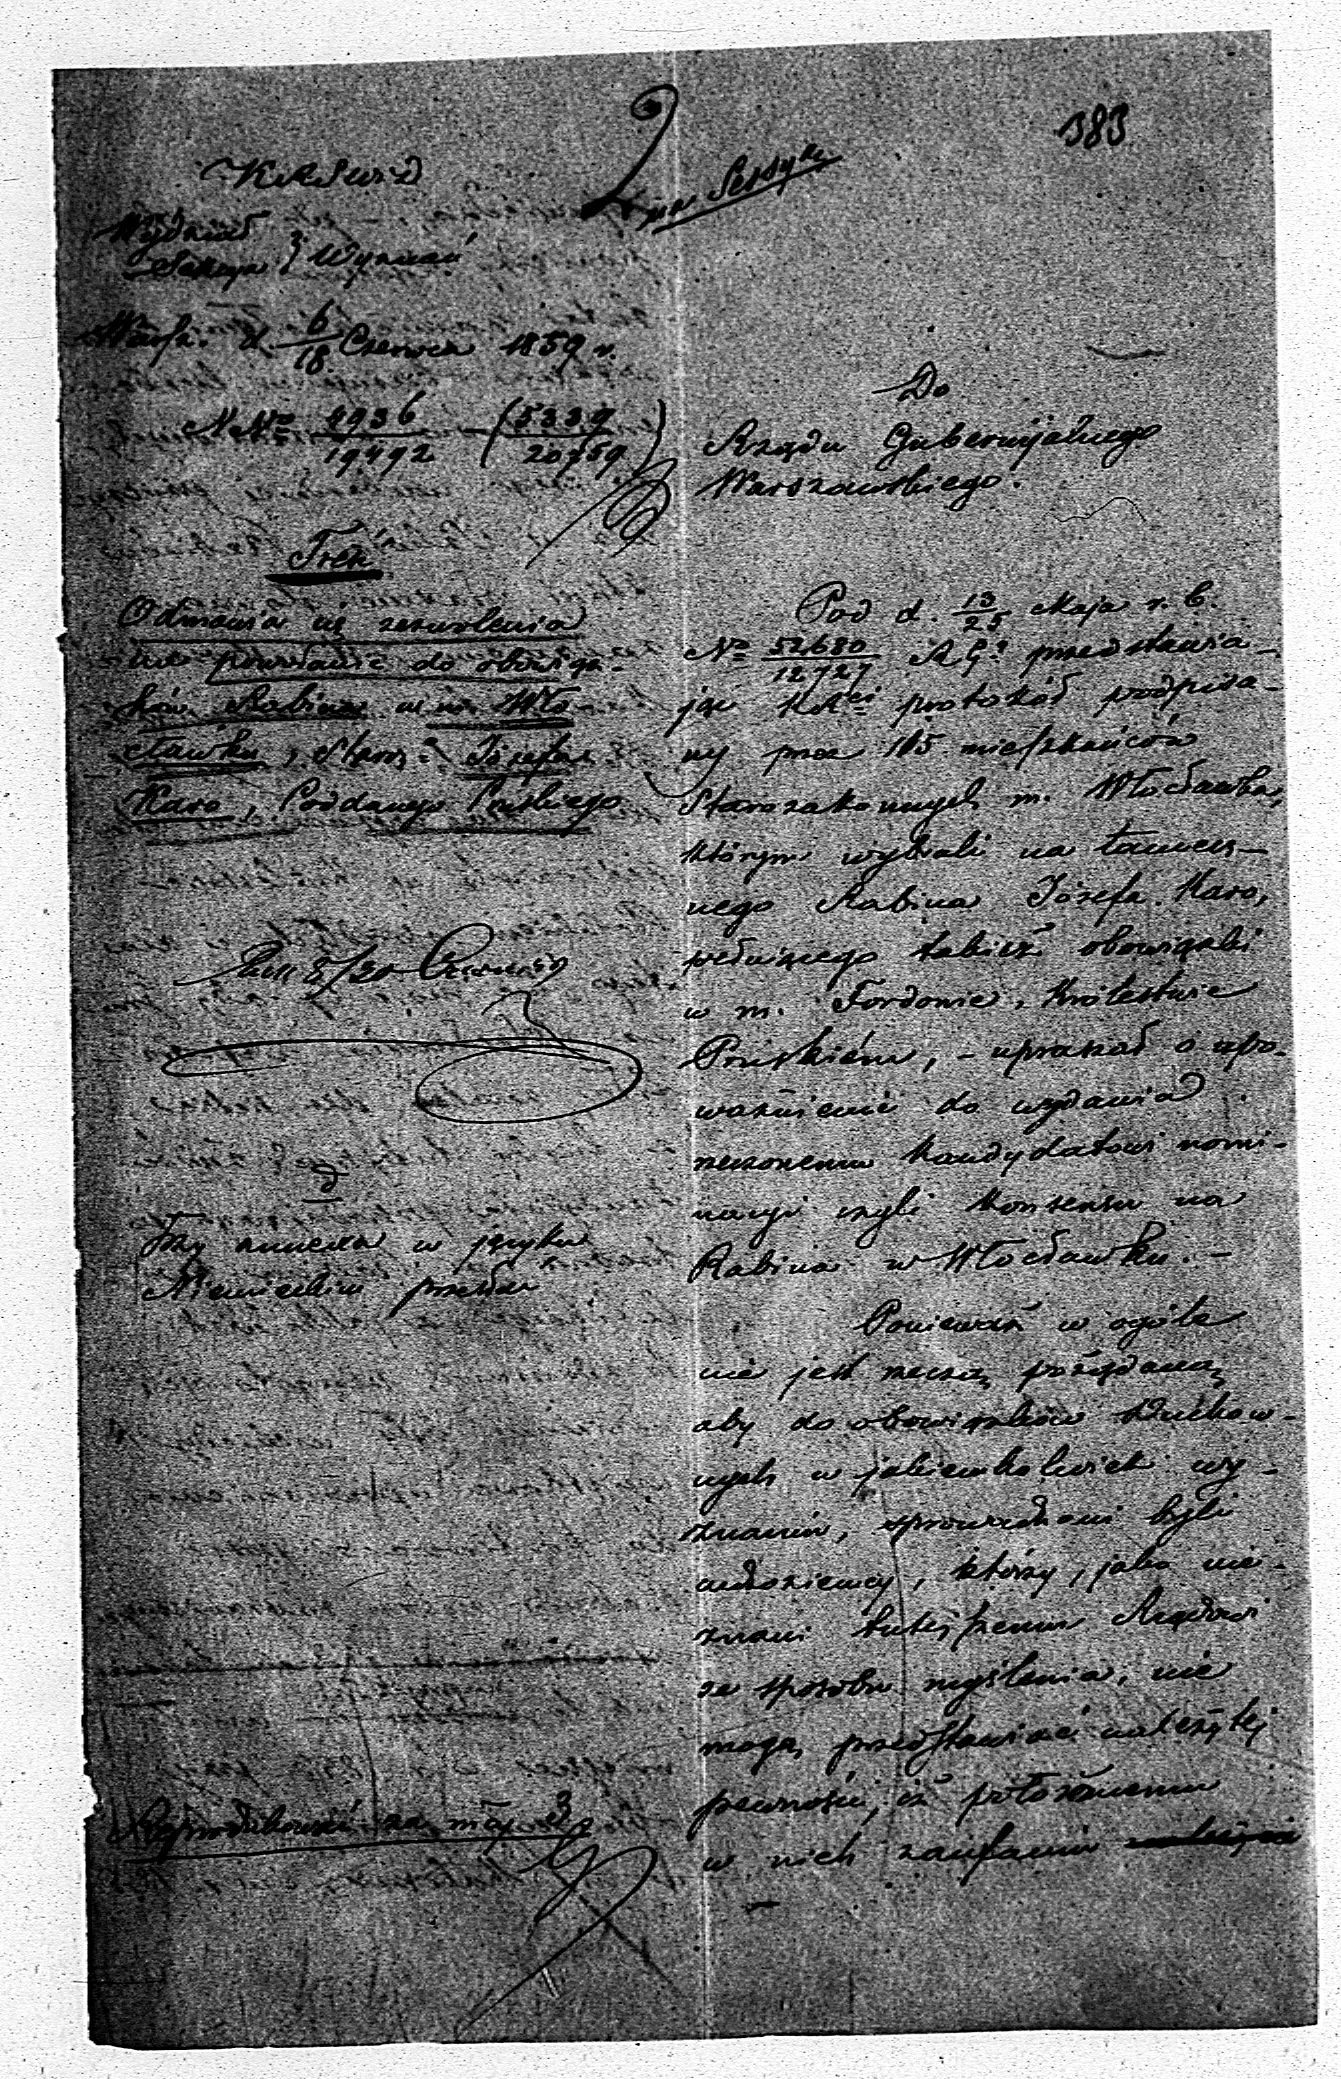 383
na Sessyą
KRSWiD
Wydział
Sekcya } Wyznań
Warsz. d. 6/18 Czerwca 1859 r.
NNo 4936/19492 – (5339/20759)
Treść
Odmawia się zezwolenia
na powołanie do obowiąz-
ków Rabina w m. Wło-
cławku, Staroz. Józefa
Karo, Poddanego Pruskiego
8/20 Czerwca 59
Trzy annexa w języku
Niemieckim
za
Do
Rządu Gubernijalnego
Warszawskiego.
Pod d. 13/25 Maja r. b.
No 52680/12727 R G. przedstawia-
jąc KRci protokół podpisa-
ny przez 115 mieszkańców
Starozakonnych m. Włocławka,
którym wybrali na tamecz-
nego Rabina Józefa Karo,
pełniącego takież obowiązki
w m. Fordonie, Królestwie
Pruskiém, – upraszał o upo-
ważnienie do wydania
rzeczonemu kandydatowi nomi-
nacyi czyli konsensu na
Rabina w Włocławku. –
Ponieważ w ogóle
nie jest rzeczą pożądaną
aby do obowiązków duchow-
nych w jakiemkolwiek wy-
znaniu, sprowadzani byli
cudzoziemcy, którzy, jako nie-
znani tutejszemu Rządowi
ze sposobu myślenia, nie
mogą przedstawiać należytej
pewności, iż położonemu
w nich zaufaniu